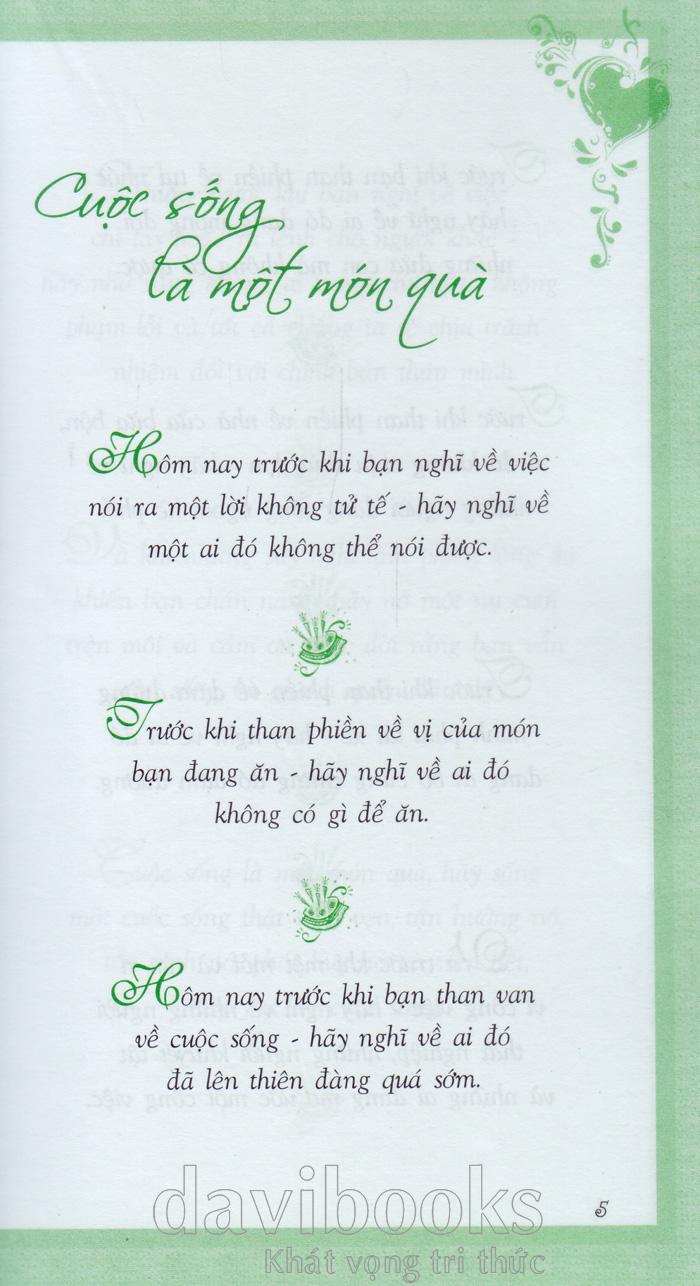 Cuộc sống
là một món quà
Hôm nay trước khi bạn nghĩ về việc
nói ra một lời không tử tế - hãy nghĩ về
một ai đó không thể nói được.
Trước khi than phiền về vị của món
bạn đang ăn - hãy nghĩ về ai đó
không có gì để ăn.
Hôm nay trước khi bạn than van
về cuộc sống - hãy nghĩ về ai đó
đã lên thiên đàng quá sớm.
5
davibooks
Khát vọng tri thức